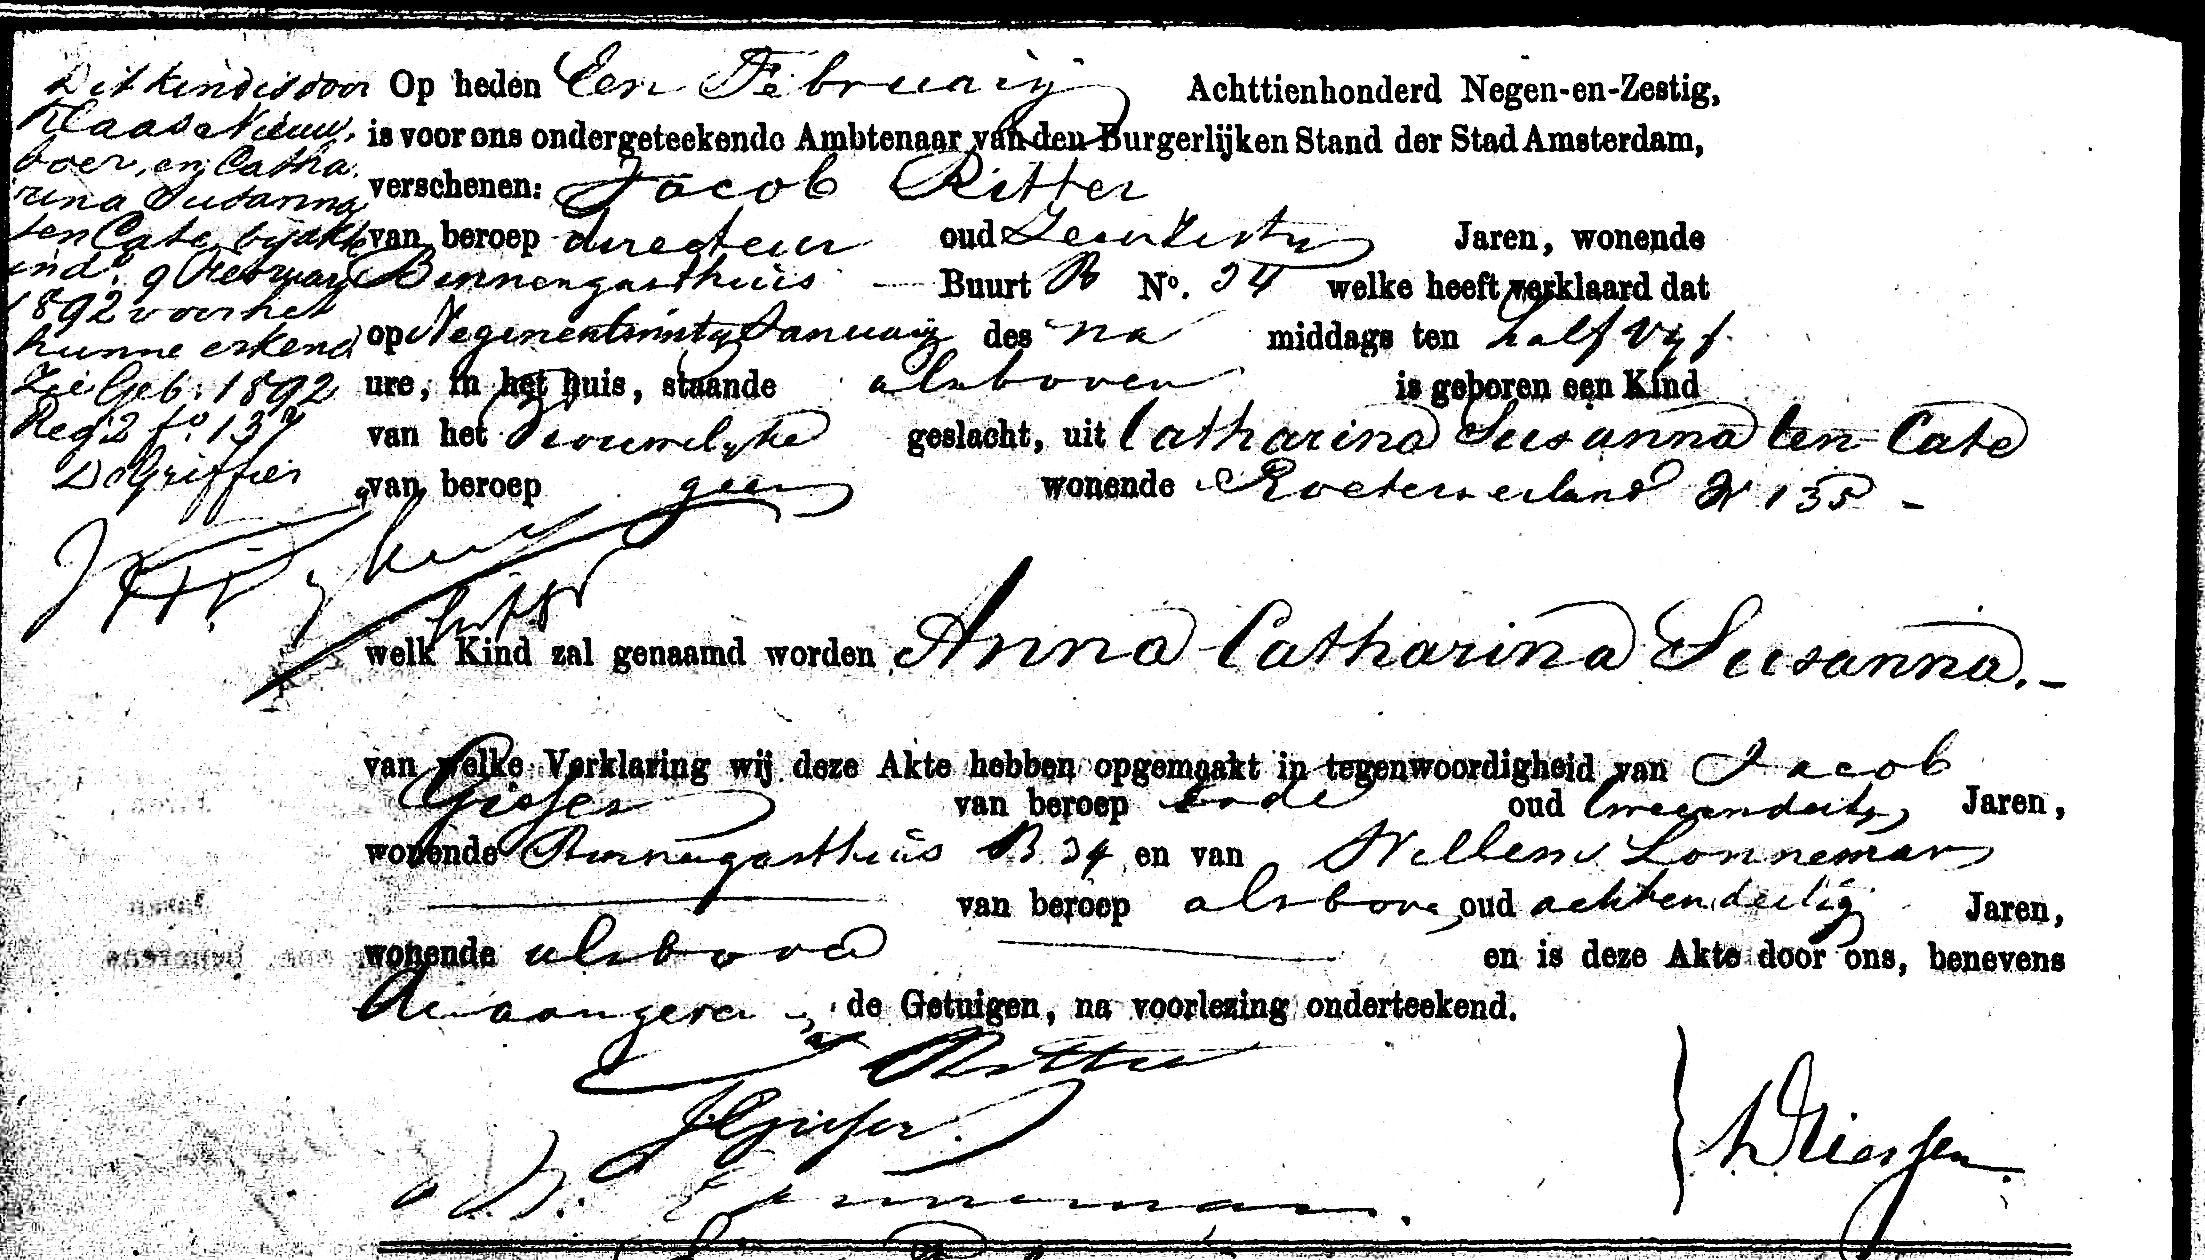 Dit kind is door
Klaas Nieuw,
boer, en Catha,
rina Susanna
ten Cate, by akte
ind. 9 February
1892 voor het
hunne erkend
Zie Geb. 1892
Reg 2 fo. 137
De Griffier
Op heden Een February Achttienhonderd Negen-en-Zestig,
is voor ons ondergeteekende Ambtenaar van den Burgerlijken Stand der Stad Amsterdam,
verschenen: Jacob Ritter
van beroep directeur oud Jaren, wonende
Binnengasthuis Buurt B No. 34 welke heeft verklaard dat
op Negenentwintig January des na middags ten half vyf
ure, in het huis, staande alsboven is geboren een Kind
van het Vrouwelyke geslacht, uit Catharina Susanna ten Cate
van beroep geen wonende Roeterseiland W 135 -
welk Kind zal genaamd worden Anna Catharina Susanna.-
van welke Verklaring wij deze Akte hebben opgemaakt in tegenwoordigheid van Jacob
Gieser van beroep bode oud tweeendertig Jaren,
wonende Binnengasthuis B 34 en van Willem Lonneman
van beroep alsbove oud achtendertig Jaren,
wonende alsboven en is deze Akte door ons, benevens
de aangever en de Getuigen, na voorlezing onderteekend.
Ritter
J Gieser.